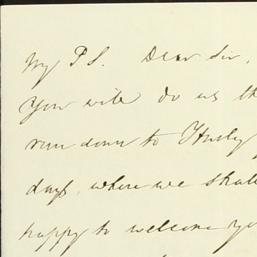 My P.S. Dear Sir,
You will do us th
run down to Hurly
days, where we shall
happy to welcome yo